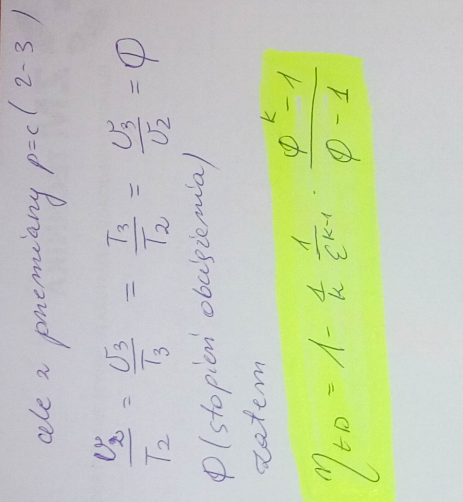 ale z przemiany p=c (2-3)
υ₂/T₂ = υ₃/T₃ = T₃/T₂ = υ₃/υ₂ = φ
φ (stopień obciążenia)
zatem
η_tD = 1 - 1/k 1/ε^(k-1) · (φ^k - 1)/(φ - 1)